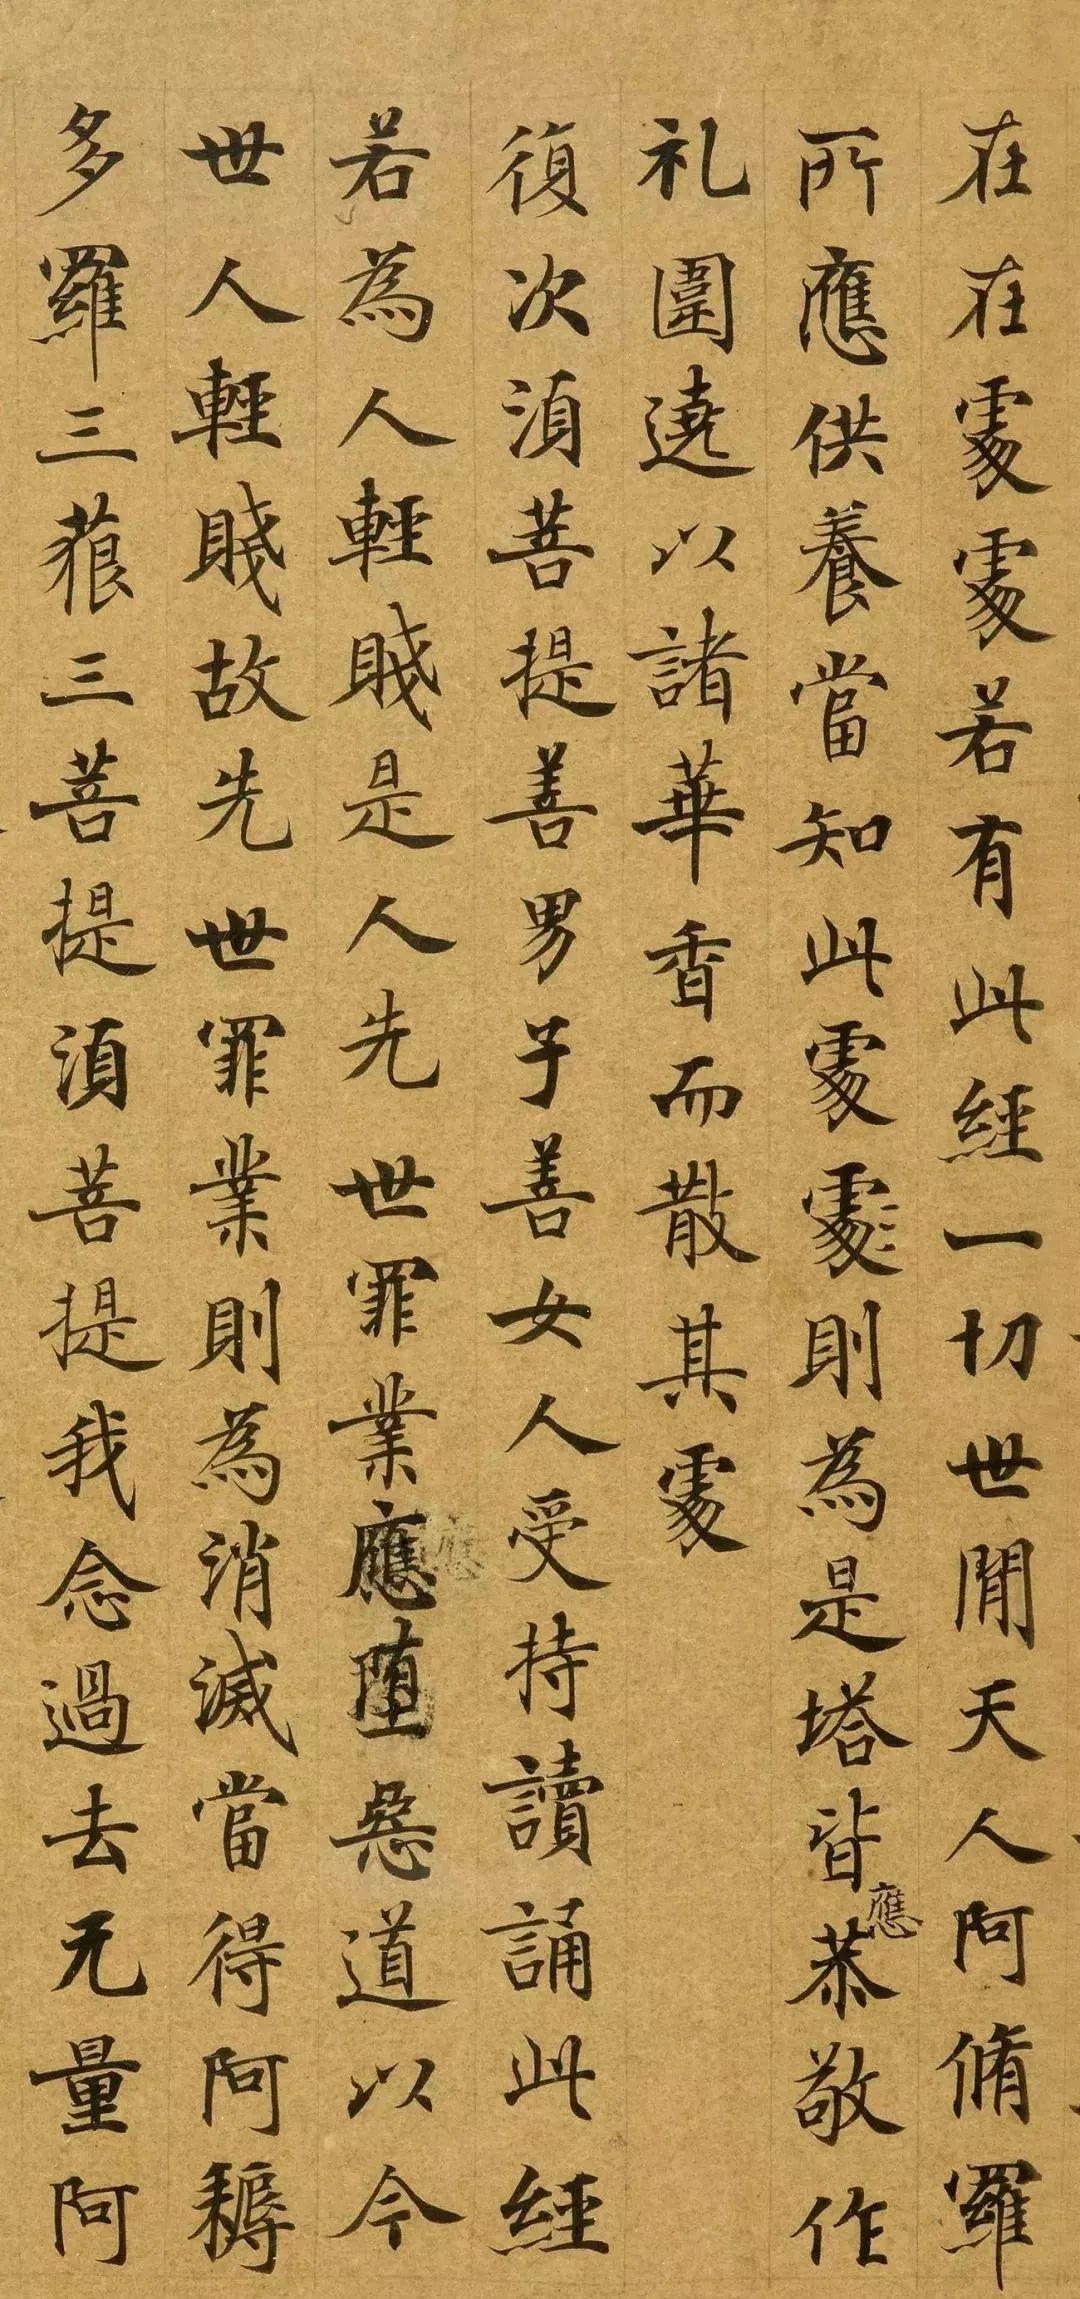 在在處處若有此經一切世間天人阿脩羅
所應供養當知此處處則為是塔皆應恭敬作
礼圍遶以諸華香而散其處
復次須菩提善男子善女人受持讀誦此經
若為人輕賤是人先世罪業應墮惡道以今
應
世人輕賤故先世罪業則為消滅當得阿耨
多羅三藐三菩提須菩提我念過去无量阿